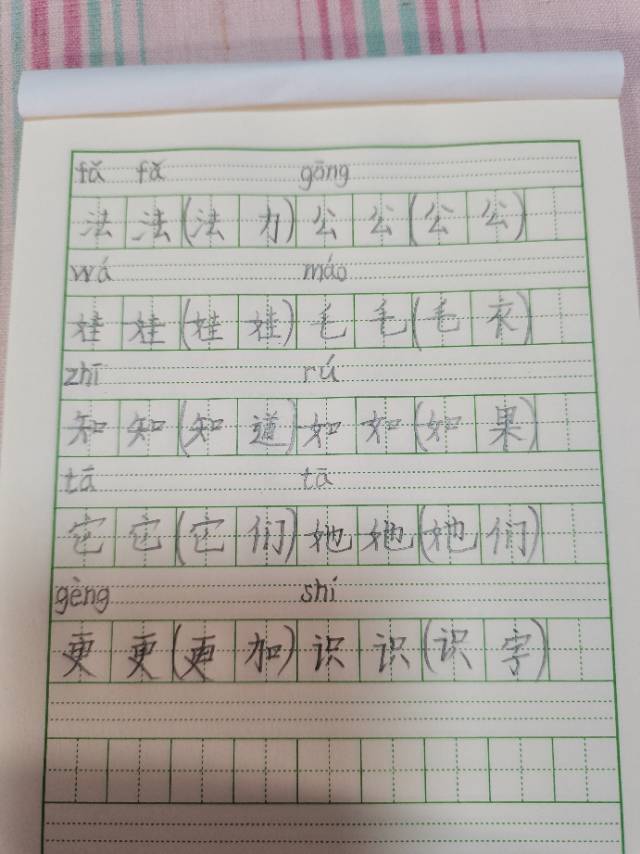 fǎ fǎ gōng
法法(法力)公公(公公)
wá máo
娃娃(娃娃)毛毛(毛衣)
zhī rú
知知(知道)如如(如果)
tā tā
它它(它们)她她(她们)
gèng shí
更更(更加)识识(识字)